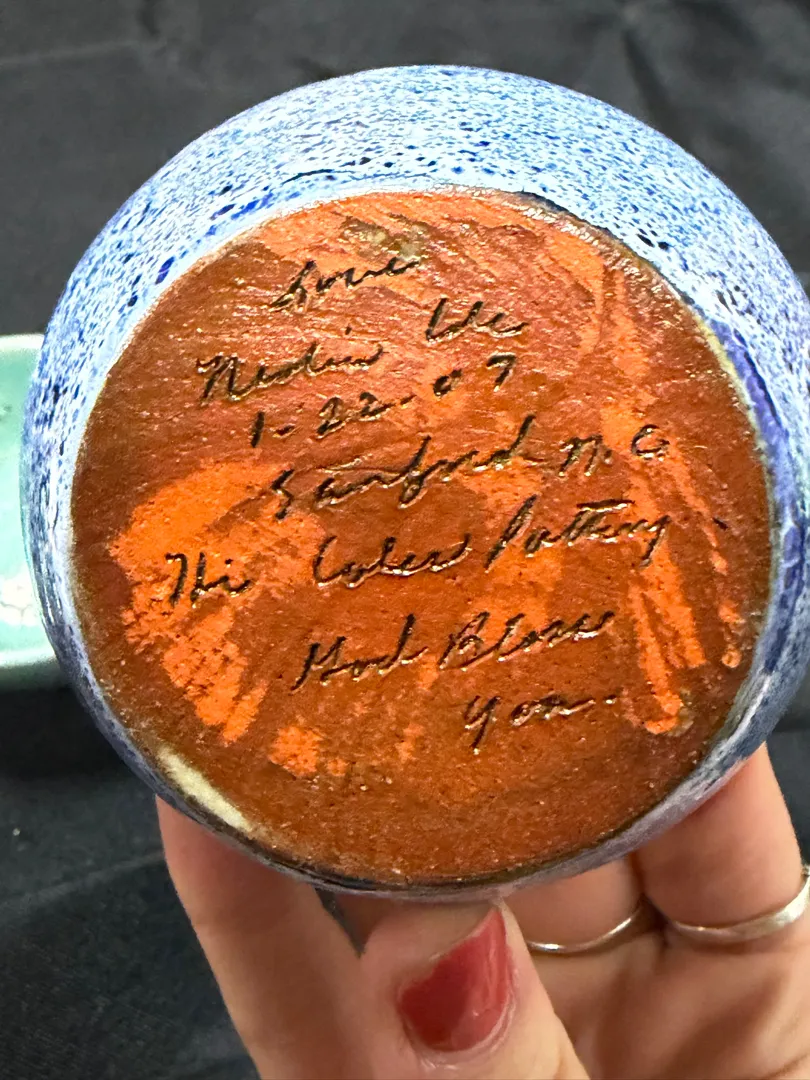 Love
Neolia Cole
1-22-07
Sanford N.C.
The Coles Pottery.
God Bless
You.